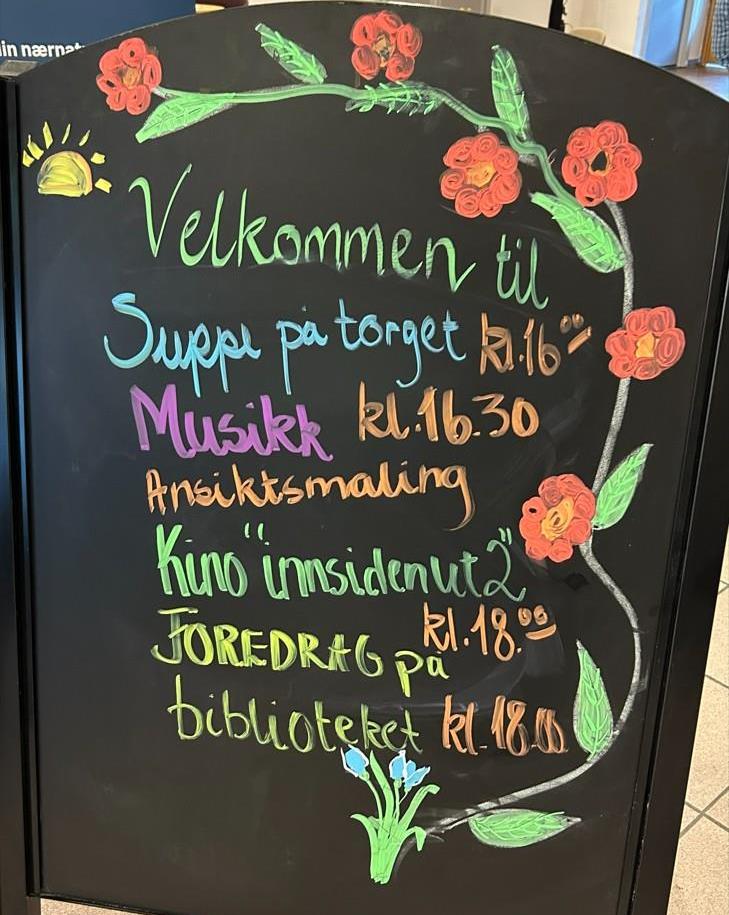 in nærnat
Velkommen til
Suppe på torget kl.16⁰⁰
Musikk kl.16.30
Ansiktsmaling
Kino "innsidenut2"
kl.18.⁰⁰
FOREDRAG på
biblioteket kl.18.00